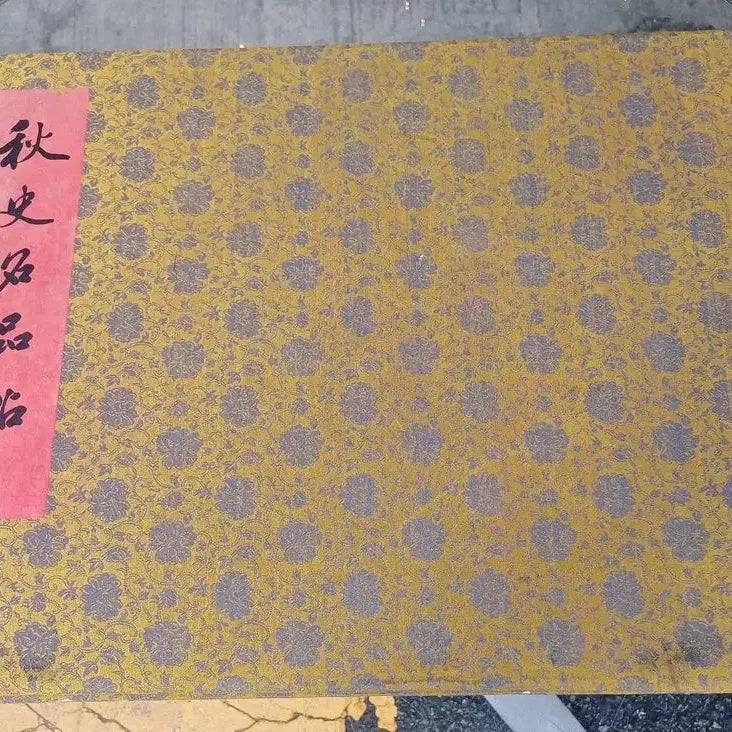 秋史名品帖